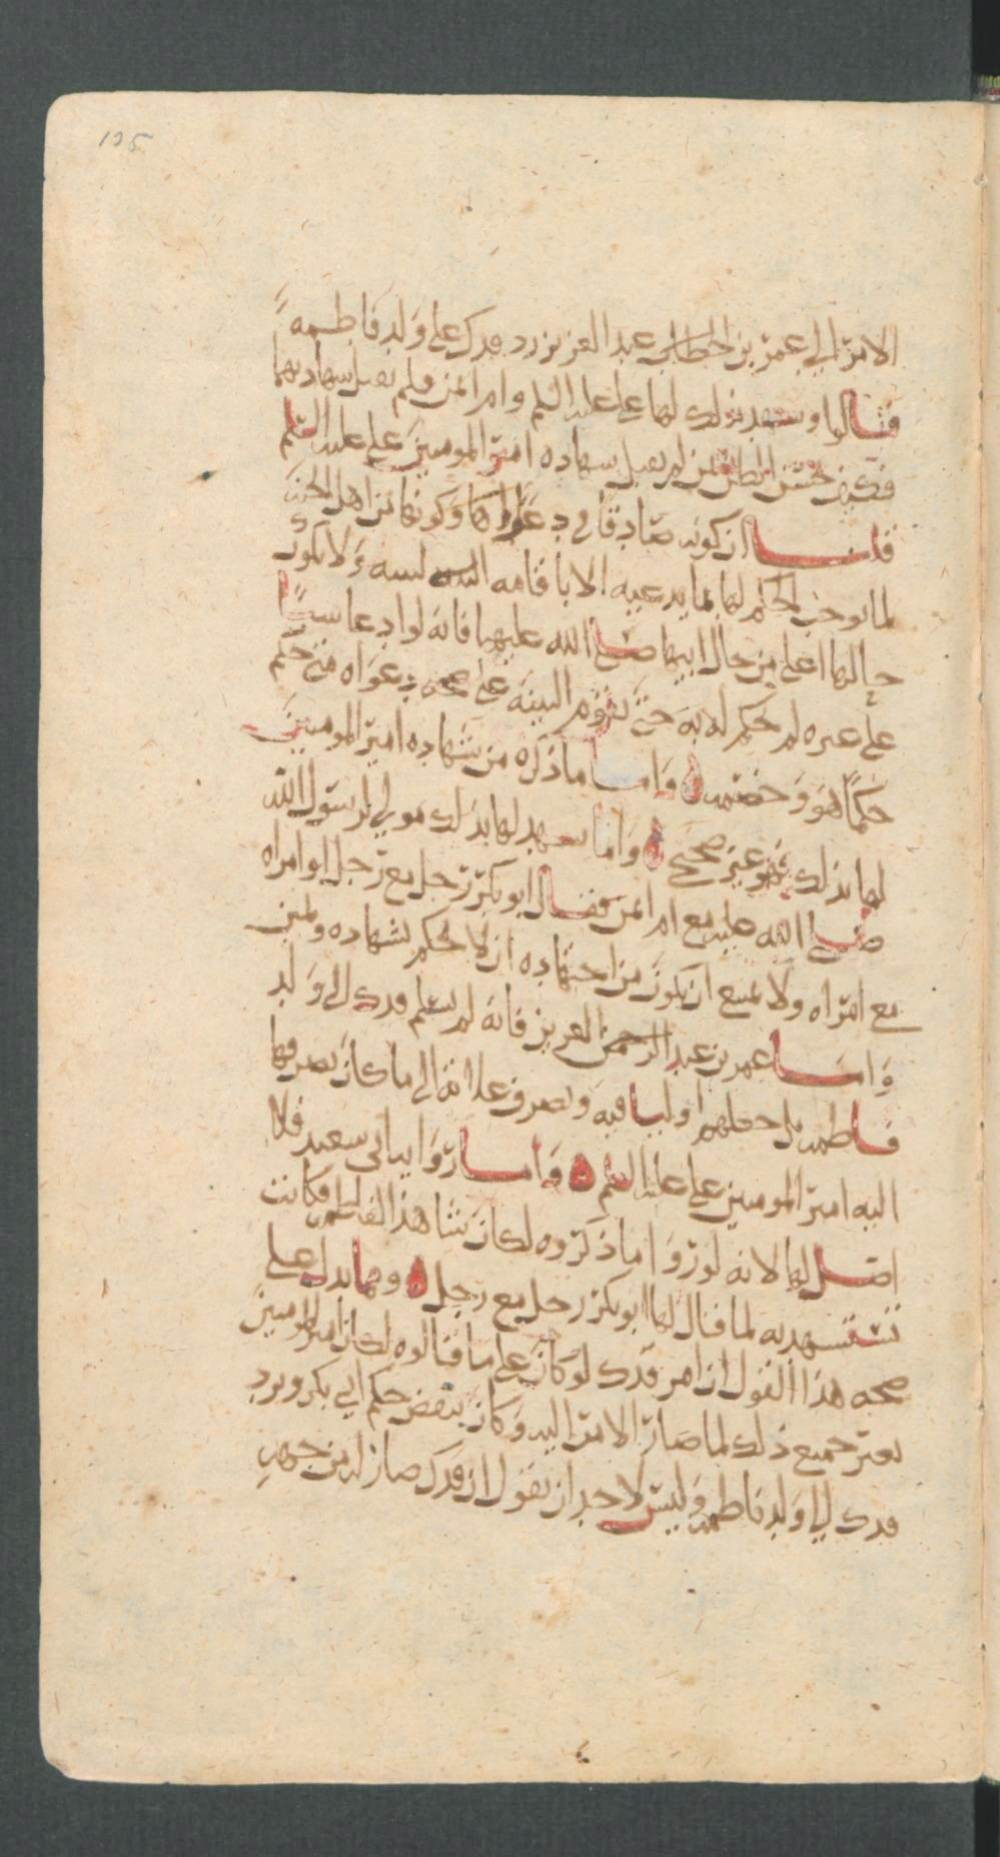 125
الامر الى عمر بن الخطاب عبد العزيز رد فدك على ولد فاطمه
قالوا وشهد بذلك لها على عليه السلم وام ايمن فلم يقبل شهادتهما
فكيف يحسن الظن بمن لم يقبل شهاده امير المومنين على عليه السلم
قلنا ان كونه صادقا في دعواها وكونها من اهل الجنه
لما يوجب الحكم لها بما يدعيه الا باقامه البينه ولا يكون
حالها اعلى من حال ابيها صلى الله عليهما فانه لو ادعا شيئا
على غيره لم يحكم له به حتى تقوم البينه على صحه دعواه متى حكم
حكما هو وخصمه واما ما ذكره من شهاده امير المومنين
لها بذلك فهو غير صحيح وانما شهد لها بذلك مولى لرسول الله
صلى الله عليه مع ام ايمن فقال ابو بكر رجل مع رجل او امراه
مع امراه ولا يمتنع ان يكون من اجتهاده ان لا يحكم بشهاده ويمين
واما عمر بن عبد العزيز فانه لم يسلم فدك الى ولد
فاطمه بل جعلهم اوليا فيه وتصرف غلاته الى ما كان يصرفها
اليه امير المومنين على عليه السلم واما روايه ابي سعيد فلا
اصل لها لانه لو روا ما ذكروه لكان شاهدا لفاطمه فكانت
تستشهد به لما قال لها ابو بكر رجل مع رجل ومما يدل على
صحه هذا القول ان امر فدك لو كان على ما قالوه لكان امير المومنين
يغير جميع ذلك لما صار الامر اليه وكان ينقض حكم ابي بكر ويرد
فدك الى ولد فاطمه وليس لاحد ان يقول ان فدك صار له من جهه